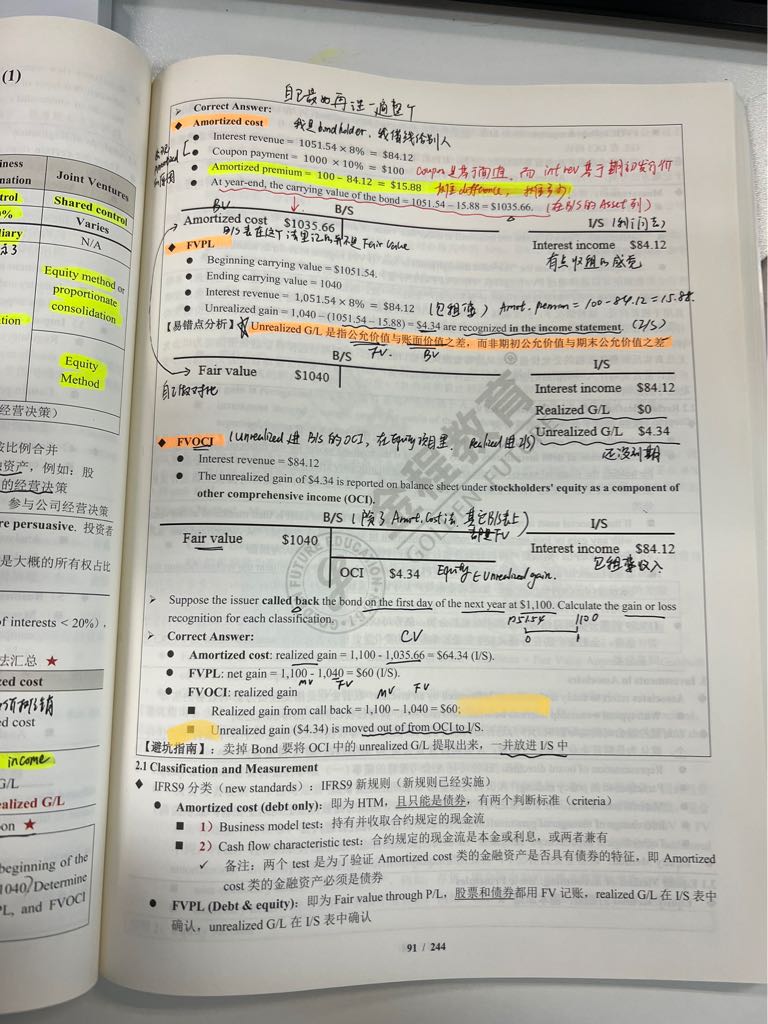 (1)
iness
nation
Joint Ventures
trol
Shared control
%
Varies
liary
N/A
Equity method or
proportionate
consolidation
ation
Equity
Method
经营决策)
按比例合并
资产,例如:股
的经营决策
参与公司经营决策
re persuasive. 投资者
是大概的所有权占比
of interests < 20%),
法汇总 ★
zed cost
ed cost
income
G/L
ealized G/L
on ★
beginning of the
1040, Determine
PL, and FVOCI
自己最好再理一遍
➢ Correct Answer:
◆ Amortized cost 我是bondholder,我借钱给别人
● Interest revenue = 1051.54 × 8% = $84.12
● Coupon payment = 1000 × 10% = $100 coupon是基于面值,而 int rev 基于期初
● Amortized premium = 100 – 84.12 = $15.88
● At year-end, the carrying value of the bond = 1051.54 – 15.88 = $1035.66. (在B/S的Asset列)
BV
B/S
I/S (利润表)
Amortized cost $1035.66
Interest income $84.12
有点收租的感觉
◆ FVPL
● Beginning carrying value = $1051.54.
● Ending carrying value = 1040
● Interest revenue = 1,051.54 × 8% = $84.12 (包租婆) Amort. = 100 - 84.12 = 15.88
● Unrealized gain = 1,040 – (1051.54 – 15.88) = $4.34 are recognized in the income statement. (I/S)
【易错点分析】Unrealized G/L 是指公允价值与账面价值之差,而非期初公允价值与期末公允价值之差
FV. BV
B/S
I/S
Fair value $1040
自己做对比
Interest income $84.12
Realized G/L $0
Unrealized G/L $4.34
还没到期
◆ FVOCI (Unrealized 进 B/S 的 OCI,在Equity 项目里. Realized 进 I/S)
● Interest revenue = $84.12
● The unrealized gain of $4.34 is reported on balance sheet under stockholders' equity as a component of
other comprehensive income (OCI).
B/S (除了 Amort. Cost法,其它B/S表上都是FV)
I/S
Fair value $1040
Interest income $84.12
包租婆收入
OCI $4.34 Equity 是 Unrealized gain.
➢ Suppose the issuer called back the bond on the first day of the next year at $1,100. Calculate the gain or loss
recognition for each classification.
1051.54 1100
0 1
➢ Correct Answer:
CV
● Amortized cost: realized gain = 1,100 - 1,035.66 = $64.34 (I/S).
● FVPL: net gain = 1,100 - 1,040 = $60 (I/S).
MV FV
● FVOCI: realized gain
MV FV
■ Realized gain from call back = 1,100 – 1,040 = $60;
■ Unrealized gain ($4.34) is moved out of from OCI to I/S.
【避坑指南】:卖掉 Bond 要将 OCI 中的 unrealized G/L 提取出来,一并放进 I/S 中
2.1 Classification and Measurement
◆ IFRS9 分类(new standards):IFRS9 新规则(新规则已经实施)
● Amortized cost (debt only): 即为 HTM,且只能是债券,有两个判断标准(criteria)
■ 1)Business model test: 持有并收取合约规定的现金流
■ 2)Cash flow characteristic test: 合约规定的现金流是本金或利息,或两者兼有
✓ 备注:两个 test 是为了验证 Amortized cost 类的金融资产是否具有债券的特征,即 Amortized
cost 类的金融资产必须是债券
● FVPL (Debt & equity): 即为 Fair value through P/L,股票和债券都用 FV 记账,realized G/L 在 I/S 表中
确认,unrealized G/L 在 I/S 表中确认
91 / 244
金程教育
GOLDEN FUTURE